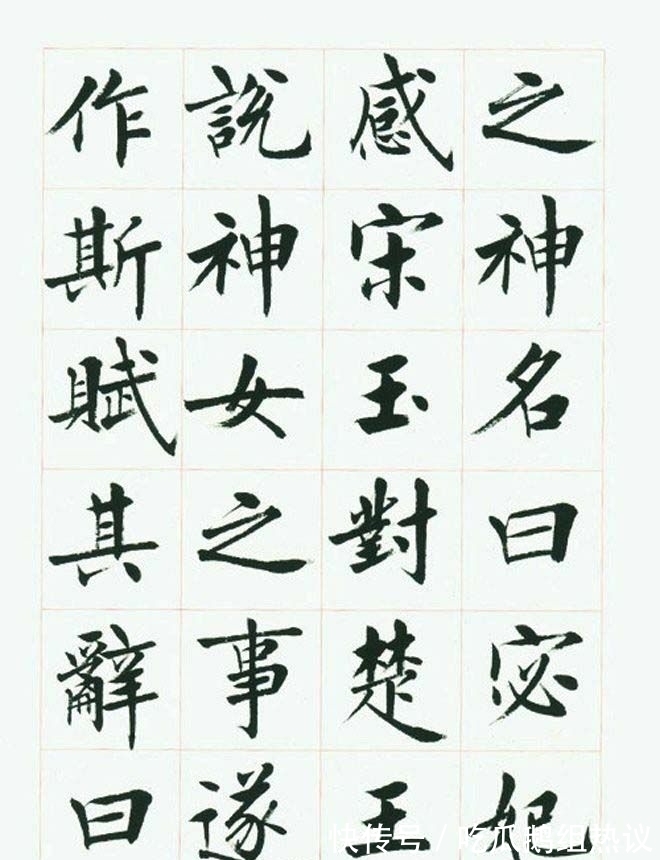 之神名曰宓妃
感宋玉對楚王
說神女之事遂
作斯賦其辭曰
快传号/吃瓜鹅组热议